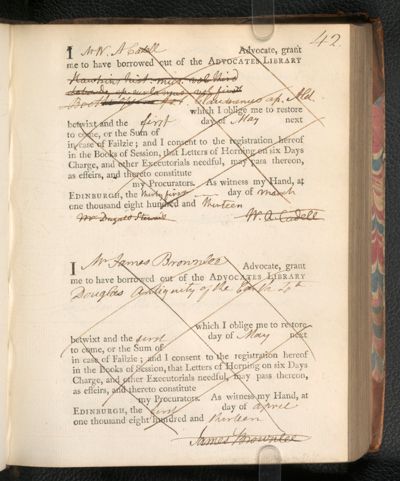 42.
I Mr W. A Cadell Advocate, grant
me to have borrowed out of the ADVOCATES LIBRARY
Hawkins hist. music vol third
first
Ald.
which I oblige me to restore
betwixt and the first day of May next
to come, or the Sum of
in case of Failzie; and I consent to the registration hereof
in the Books of Session, that Letters of Horning on six Days
Charge, and other Executorials needful, may pass thereon,
as effeirs, and thereto constitute
my Procurators. As witness my Hand, at
EDINBURGH, the thirty first day of March
one thousand eight hundred and thirteen
Mr Dugald Stewart W. A. Cadell
I Mr James Brownlee Advocate, grant
me to have borrowed out of the ADVOCATES LIBRARY
Douglas Antiquity of the Earth 4to
which I oblige me to restore
betwixt and the first day of May next
to come, or the Sum of
in case of Failzie; and I consent to the registration hereof
in the Books of Session, that Letters of Horning on six Days
Charge, and other Executorials needful, may pass thereon,
as effeirs, and thereto constitute
my Procurators. As witness my Hand, at
EDINBURGH, the first day of april
one thousand eight hundred and thirteen
James Brownlee